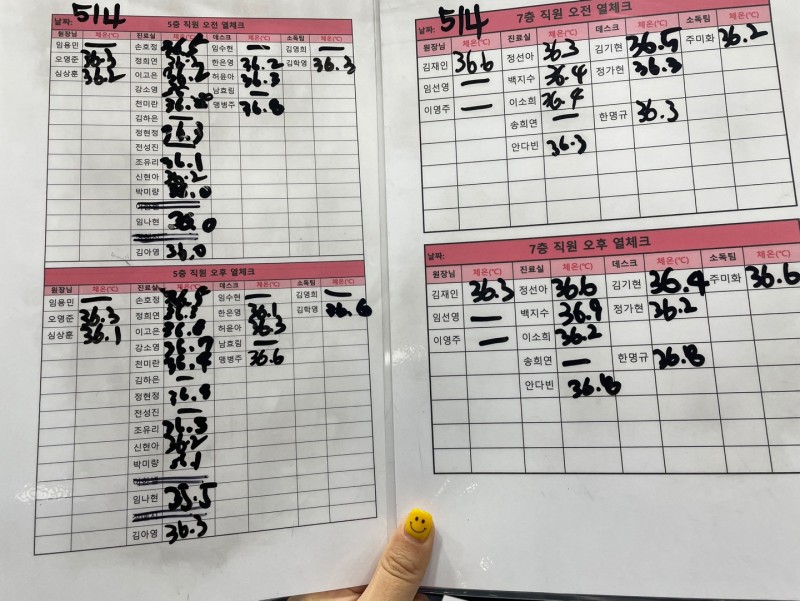 날짜: 5/4 5층 직원 오전 열체크
원장님 체온(℃) 진료실 체온(℃) 데스크 체온(℃) 소독팀 체온(℃)
임용민 — 손호정 임수현 — 김영희 —
오영준 36.3 정희연 한은영 36.2 김학영 36.3
심상훈 36.2 이고은 36.2 허윤아 36.3
강소영 남효림 —
천미란 맹병주 36.8
김하은 —
정현정 36.3
전성진
조유리 36.1
신현아
박미량
임나현 36.0
김아영 36.0
5층 직원 오후 열체크
원장님 체온(℃) 진료실 체온(℃) 데스크 체온(℃) 소독팀 체온(℃)
임용민 — 손호정 임수현 — 김영희 —
오영준 36.3 정희연 한은영 36.1 김학영 36.6
심상훈 36.1 이고은 허윤아 36.3
강소영 36.7 남효림 —
천미란 36.4 맹병주 36.6
김하은 —
정현정
전성진 —
조유리
신현아 36.2
박미량
임나현 35.5
김아영 36.3
날짜: 5/4 7층 직원 오전 열체크
원장님 체온(℃) 진료실 체온(℃) 데스크 체온(℃) 소독팀 체온(℃)
김재인 36.6 정선아 36.3 김기현 36.5 주미화 36.2
임선영 — 백지수 36.4 정가현 36.3
이영주 — 이소희 36.4
송희연 — 한명규 36.3
안다빈 36.3
날짜: 7층 직원 오후 열체크
원장님 체온(℃) 진료실 체온(℃) 데스크 체온(℃) 소독팀 체온(℃)
김재인 36.3 정선아 36.6 김기현 36.4 주미화 36.6
임선영 — 백지수 36.9 정가현 36.2
이영주 — 이소희 36.2
송희연 — 한명규 36.8
안다빈 36.8